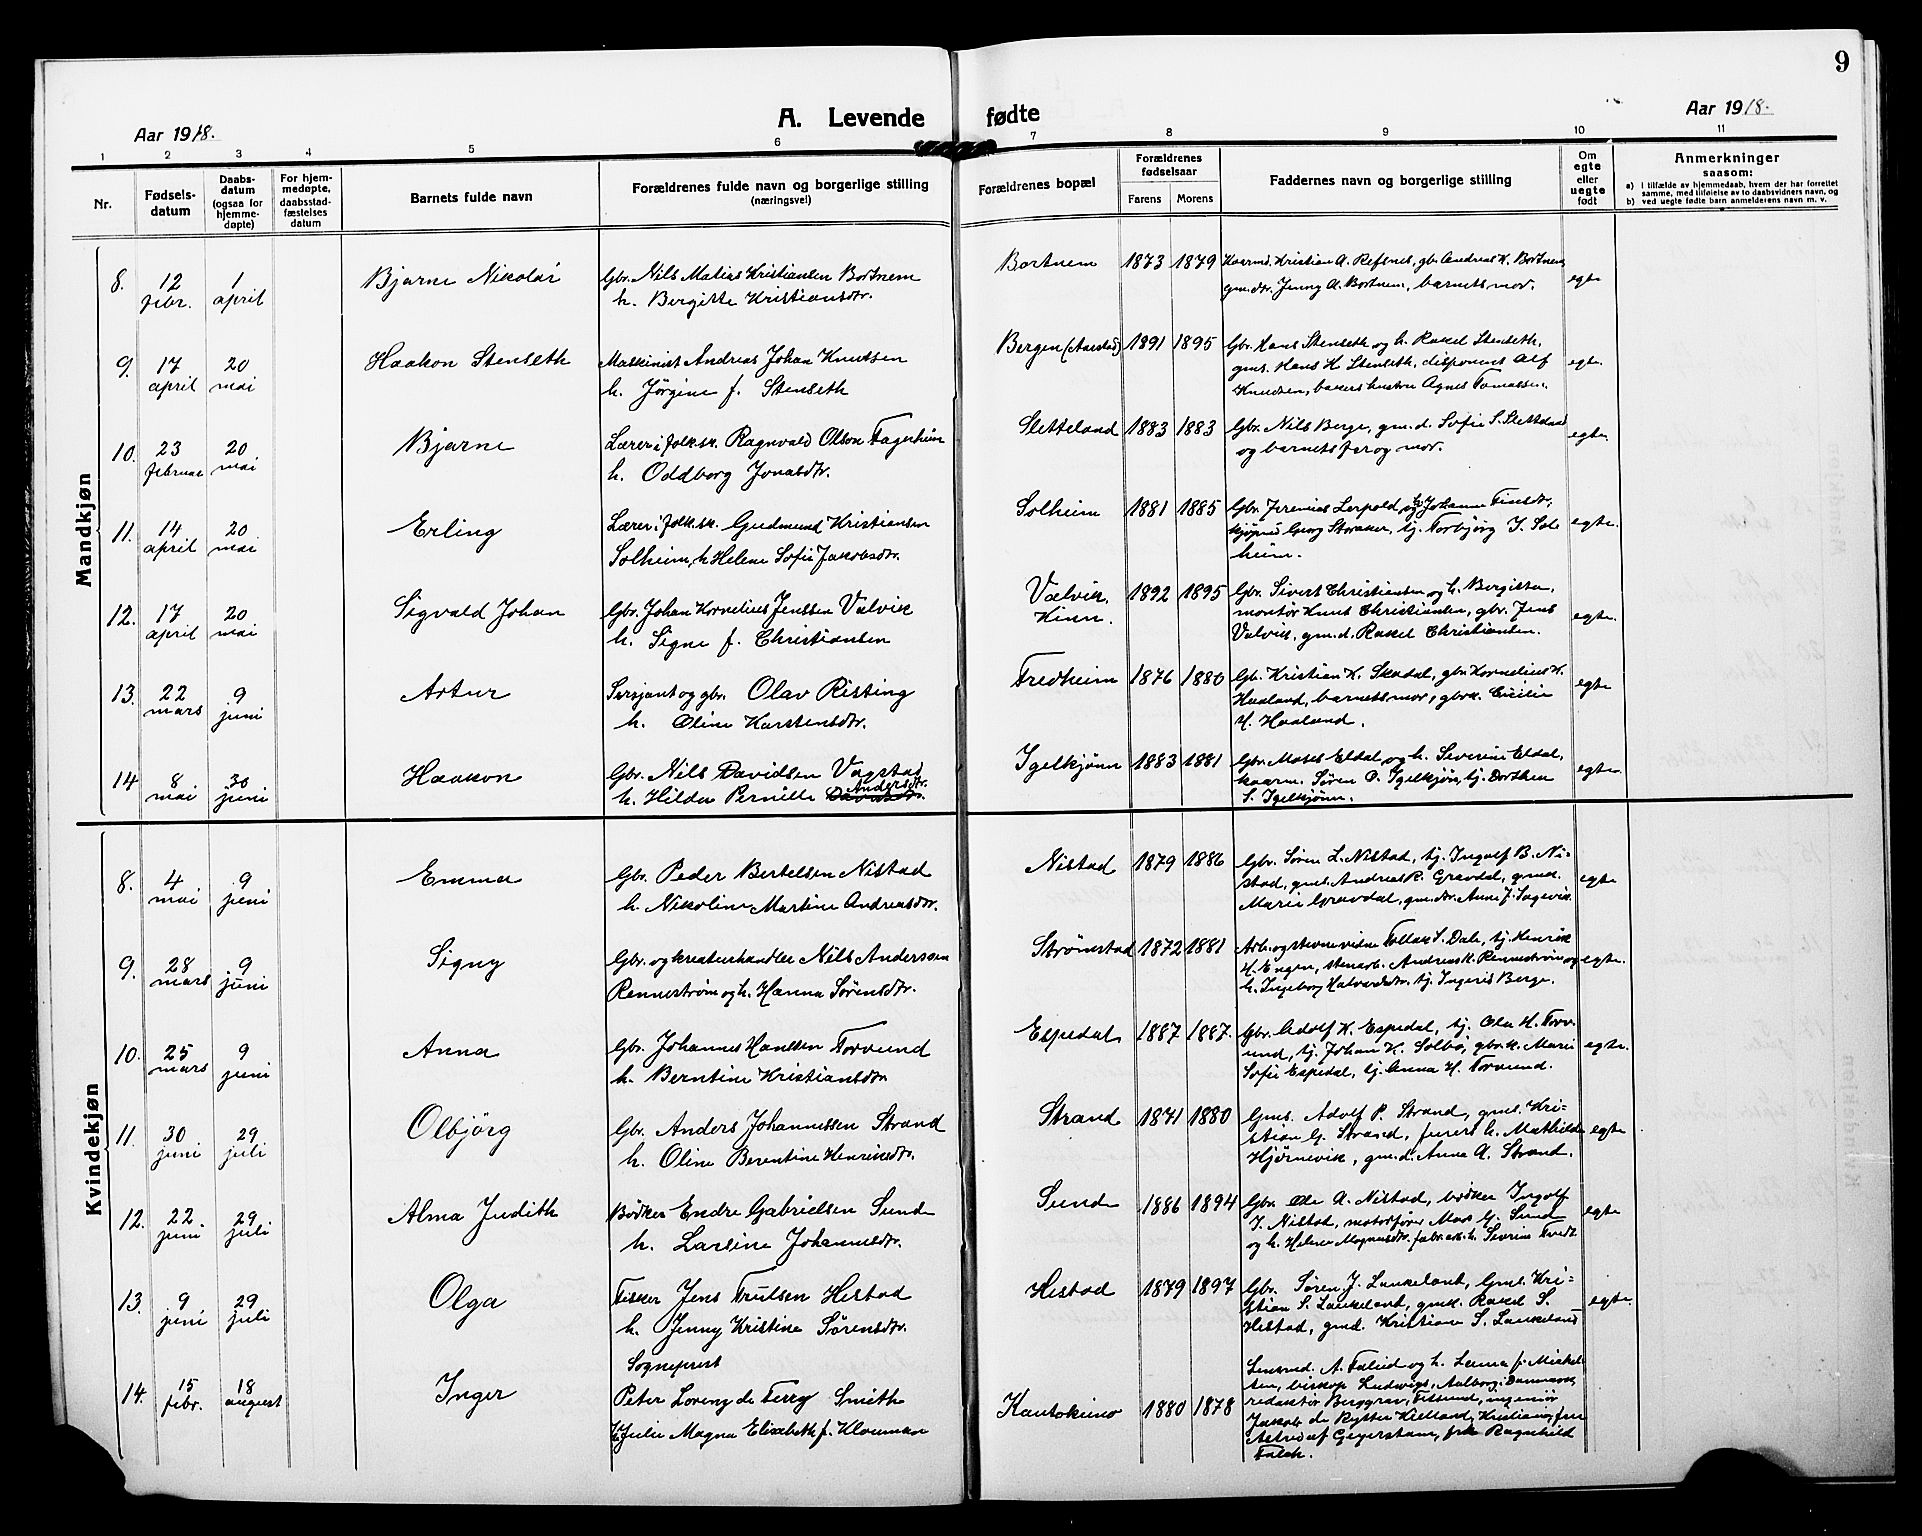 9
A. Levende fødte
Aar 1918.
Aar 1918.
1 2 3 4 5 6 7 8 9 10 11
Nr.
Fødsels-
datum
Daabs-
datum
(ogsaa for
hjemme-
døpte)
For hjem-
medøpte,
daabsstad-
fæstelses
datum
Barnets fulde navn
Forældrenes fulde navn og borgerlige stilling
(næringsvei)
Forældrenes bopæl
Forældrenes
fødselsaar
Farens Morens
Faddernes navn og borgerlig stilling
Om
egte
eller
uegte
født
Anmerkninger
saasom:
a) i tilfælde av hjemmedaab, hvem der har forrettet
samme, med tilføielse av to daabsvidners navn, og
b) ved uegte fødte barn anmelderens navn m. v.
Mandkjøn
8. 12 febr. 1 april
Bjarne Nikolai
Gbr. Nils Matias Kristiansen Bortnem
h. Bergitte Kristiansdtr.
Bortnem 1873 1879
Kaarmd. Kristian A. Refsnes, gbr. Andreas K. Bortnem
gm.dtr. Jenny A. Bortnem, barnets mor.
egte
9. 17 april 20 mai
Haakon Stenseth
Maskinist Andreas Johan Knutsen
h. Jørgine f. Stenseth
Bergen (Aarstad) 1891 1895
Gbr. Hans Stenseth og h. Rakel Stenseth,
gms. Hans H. Stenseth, disponent Alf
Knudsen, bakers hustru Agnes Tomassen.
egte.
10. 23 februar 20 mai
Bjarne
Lærer i folksk. Ragnvald Olson Fagerheim
h. Oddborg Jonasdtr.
Sletteland 1883 1883
Gbr. Nils Berge, gm.d. Sofie S. Sletteland
og barnets far og mor.
egte.
11. 14 april 20 mai
Erling
Lærer i folk.sk. Gudmund Kristiansen
Solheim, h. Helene Sofie Jakobsdtr.
Solheim 1881 1885
Gbr. Jeremias Leopold og h. Johanna Finsdtr,
kjøpmd Georg Storaker, tj. Torbjørg J. Sol
heim.
egte.
12. 17 april 20 mai
Sigvald Johan
Gbr. Johan Kornelius Jenssen Valvik
h. Signe f. Christiansen
Valvik, 1892 1895
Kinn.
Gbr. Sivert Christiansen og h. Bergitta,
montør Knut Christiansen, gbr. Jens
Valvik, gm.d. Rakel Christiansen.
egte.
13. 22 mars 9 juni
Artur
Sersjant og gbr. Olav Risting
h. Oline Karstensdtr.
Fredheim 1876 1880
Gbr. Kristian K. Skadal, gbr. Kornelius H.
Haaland, barnets mor, gbrk. Cecilie
H. Haaland.
egte
14 8 mai 30 juni
Haakon
Gbr. Nils Davidsen Vagstad
h. Hilda Pernille Andersdtr.
Igelkjønn 1883 1881
Gbr. Moses Eldal og h. Severine Eldal,
kaarm. Søren P. Igelkjøn, tj. Dorthea
S. Igelkjønn.
egte.
Kvindekjøn
8. 4 mai 9 juni
Emma
Gbr. Peder Bertelsen Nistad
h. Nikoline Martine Andreasdtr.
Nistad 1879 1886
Gbr. Søren L. Nistad, tj. Ingolf B. Ni-
stad, gms. Andreas R. Gravdal, gmk.
Marie Gravdal, gm.dtr. Anne J. Sagevik.
egte
9. 28 mars 9 juni
Signy
Gbr. og kreaturhandler Nils Anderssen
Rennestrøm og h. Hanna Sørensdtr.
Strømstad 1872 1881
Arb. og stevnevidne Tollak S. Dale, tj. Henrik
H. Engen, stenarb. Andreas K. Rennestrøm og
h. Ingeborg Halvardsdtr. tj. Ingeris Berge.
egte.
10. 25 mars 9 juni
Anna
Gbr. Johannes Hanssen Torvund
h. Berntine Kristiansdtr
Espedal 1887 1887.
Gbr. Adolf K. Espedal, tj. Ola H. Torv-
und, tj. Johan K. Solbø, gbr.k. Marie
Sofie Espedal, tj. Anna H. Torvund.
egte.
11. 30 juni 29 juli
Olbjörg
Gbr. Anders Johannessen Strand
h. Oline Berentine Henriksdtr.
Strand 1871 1880
Gms. Adolf P. Strand, gms. Kri-
stian G. Strand, h. Mathilde
Hjørnevik, gm.d. Anna A. Strand.
egte
12. 22 juni 29 juli
Alma Judith
Bødker Endre Gabrielsen Sunde
h. Larsine Johannesdtr.
Sunde 1886 1894
Gbr. Ole A. Nistad, bødker Ingolf
J. Nistad, motorfører Mars G. Sunde
og h. Helene Magnusdtr. fabr.arb. h. Severine Tvedt
egte
13. 9 juni 29 juli
Olga
Fisker Jens Trulsen Hestad
h. Jenny Kristine Sørensdtr.
Hestad 1879 1897
Gbr. Søren J. Laukeland, Gms. Kri-
stian S. Laukeland, gmk. Rakel S.
Hestad, gmd. Kristiane S. Laukeland
egte.
14. 15 febr. 18 august
Inger
Sogneprest
Peter Lorenz de Ferry Smith
h. Julie Magna Elisabeth f. Klouman
Kautokeino 1880 1878
Lensmd. A. Faleid og h. Lama f. Mickel-
sen, biskop Ludwigs, Aalborg, Danmark,
redaktør Berggrav, Eidsund, ingeniør
Jakob de Rytter Kielland, Kristiania, fru
Astrid af Geyerstam, frk. Ragnhild
Falck.